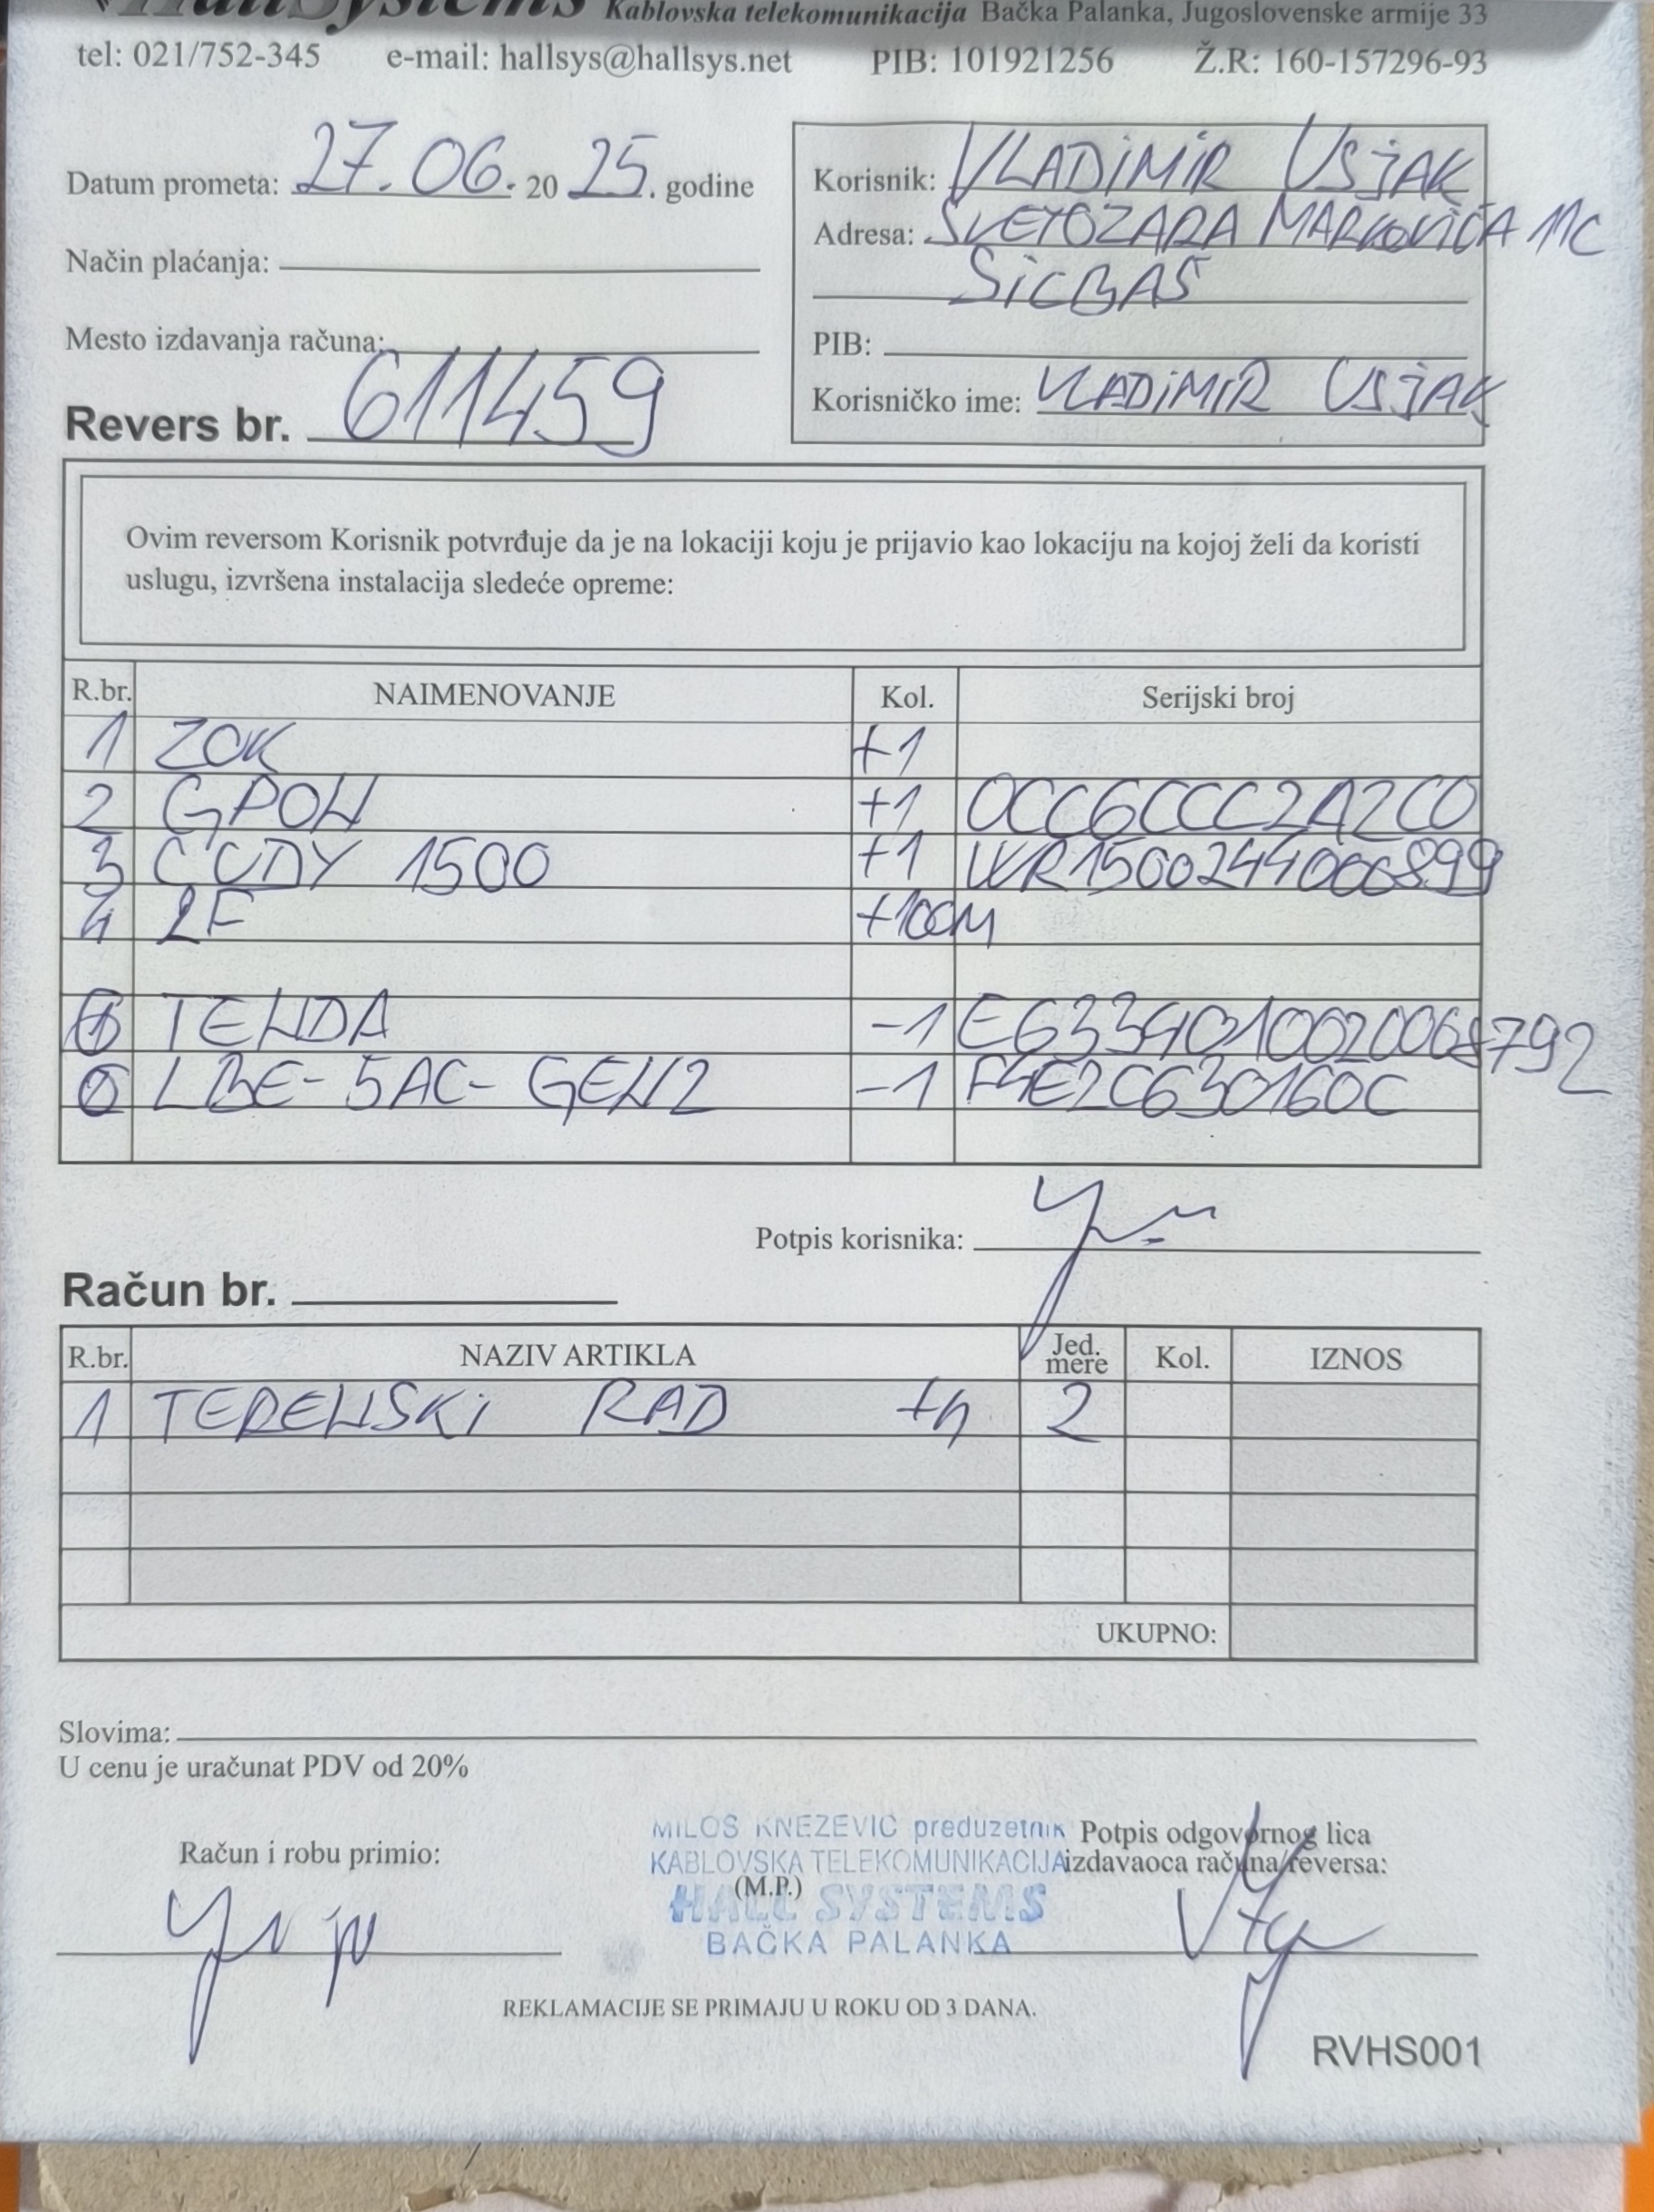 HallSystems Kablovska telekomunikacija Bačka Palanka, Jugoslovenske armije 33
tel: 021/752-345 e-mail: hallsys@hallsys.net PIB: 101921256 Ž.R: 160-157296-93
Datum prometa: 27.06.2025. godine
Način plaćanja:
Mesto izdavanja računa:
Revers br. 611459
Korisnik: VLADIMIR USJAK
Adresa: SVETOZARA MARKOVIĆA 11C
SICBAŠ
PIB:
Korisničko ime: VLADIMIR USJAK
Ovim reversom Korisnik potvrđuje da je na lokaciji koju je prijavio kao lokaciju na kojoj želi da koristi
uslugu, izvršena instalacija sledeće opreme:
R.br. NAIMENOVANJE Kol. Serijski broj
1 ZOK +1
2 GPON +1 0CC6CCC2A2C0
3 CUDY 1500 +1 WR1500244000899
4 2F +100M
TENDA -1
6 LBE-5AC-GEN2 -1 F4E2C630160C
Potpis korisnika:
Račun br.
R.br. NAZIV ARTIKLA Jed. mere Kol. IZNOS
1 TERENSKI RAD +h 2
UKUPNO:
Slovima:
U cenu je uračunat PDV od 20%
Račun i robu primio:
MILOŠ KNEŽEVIĆ preduzetnik
KABLOVSKA TELEKOMUNIKACIJA
(M.P.)
HALL SYSTEMS
BAČKA PALANKA
Potpis odgovornog lica
izdavaoca računa/reversa:
REKLAMACIJE SE PRIMAJU U ROKU OD 3 DANA.
RVHS001